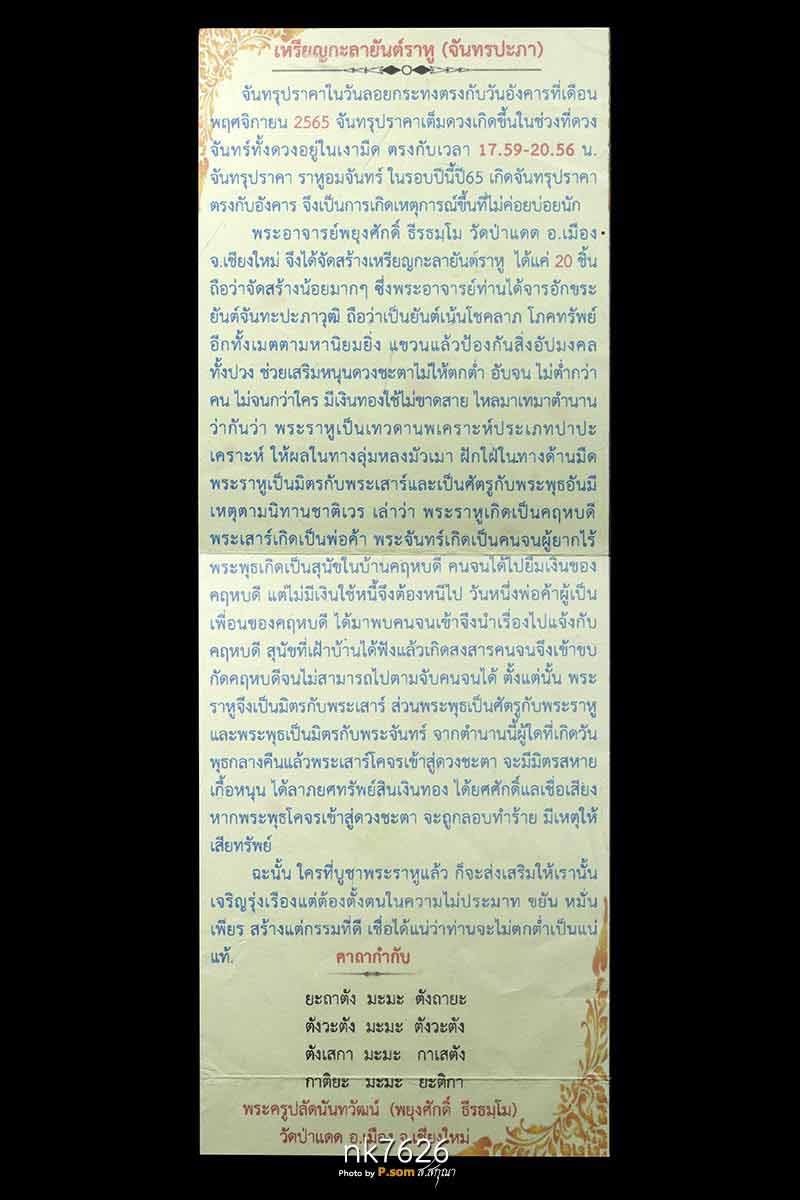 เหรียญกะลายันต์ราหู (จันทรปะภา)
จันทรุปราคาในวันลอยกระทงตรงกับวันอังคารที่เดือน
พฤศจิกายน 2565 จันทรุปราคาเต็มดวงเกิดขึ้นในช่วงที่ดวง
จันทร์ทั้งดวงอยู่ในเงามืด ตรงกับเวลา 17.59-20.56 น.
จันทรุปราคา ราหูอมจันทร์ ในรอบปีนี้ปี65 เกิดจันทรุปราคา
ตรงกับอังคาร จึงเป็นการเกิดเหตุการณ์ขึ้นที่ไม่ค่อยบ่อยนัก
พระอาจารย์พยุงศักดิ์ ธีรธมฺโม วัดป่าแดด อ.เมือง
จ.เชียงใหม่ จึงได้จัดสร้างเหรียญกะลายันต์ราหู ได้แค่ 20 ชิ้น
ถือว่าจัดสร้างน้อยมากๆ ซึ่งพระอาจารย์ท่านได้จารอักขระ
ยันต์จันทะปะภาวุฒิ ถือว่าเป็นยันต์เน้นโชคลาภ โภคทรัพย์
อีกทั้งเมตตามหานิยมยิ่ง แขวนแล้วป้องกันสิ่งอัปมงคล
ทั้งปวง ช่วยเสริมหนุนดวงชะตาไม่ให้ตกต่ำ อับจน ไม่ต่ำกว่า
คน ไม่จนกว่าใคร มีเงินทองใช้ไม่ขาดสาย ไหลมาเทมาตำนาน
ว่ากันว่า พระราหูเป็นเทวดานพเคราะห์ประเภทปาปะ
เคราะห์ ให้ผลในทางลุ่มหลงมัวเมา ฝักใฝ่ในทางด้านมืด
พระราหูเป็นมิตรกับพระเสาร์และเป็นศัตรูกับพระพุธอันมี
เหตุตามนิทานชาติเวร เล่าว่า พระราหูเกิดเป็นคฤหบดี
พระเสาร์เกิดเป็นพ่อค้า พระจันทร์เกิดเป็นคนจนผู้ยากไร้
พระพุธเกิดเป็นสุนัขในบ้านคฤหบดี คนจนได้ไปยืมเงินของ
คฤหบดี แต่ไม่มีเงินใช้หนี้จึงต้องหนีไป วันหนึ่งพ่อค้าผู้เป็น
เพื่อนของคฤหบดี ได้มาพบคนจนเข้าจึงนำเรื่องไปแจ้งกับ
คฤหบดี สุนัขที่เฝ้าบ้านได้ฟังแล้วเกิดสงสารคนจนจึงเข้าขบ
กัดคฤหบดีจนไม่สามารถไปตามจับคนจนได้ ตั้งแต่นั้น พระ
ราหูจึงเป็นมิตรกับพระเสาร์ ส่วนพระพุธเป็นศัตรูกับพระราหู
และพระพุธเป็นมิตรกับพระจันทร์ จากตำนานนี้ผู้ใดที่เกิดวัน
พุธกลางคืนแล้วพระเสาร์โคจรเข้าสู่ดวงชะตา จะมีมิตรสหาย
เกื้อหนุน ได้ลาภยศทรัพย์สินเงินทอง ได้ยศศักดิ์แลเชื่อเสียง
หากพระพุธโคจรเข้าสู่ดวงชะตา จะถูกลอบทำร้าย มีเหตุให้
เสียทรัพย์
ฉะนั้น ใครที่บูชาพระราหูแล้ว ก็จะส่งเสริมให้เรานั้น
เจริญรุ่งเรืองแต่ต้องตั้งตนในความไม่ประมาท ขยัน หมั่น
เพียร สร้างแต่กรรมที่ดี เชื่อได้แน่ว่าท่านจะไม่ตกต่ำเป็นแน่
แท้.
คาถากำกับ
ยะถาตัง มะมะ ตังถายะ
ตังวะตัง มะมะ ตังวะตัง
ตังเสกา มะมะ กาเสตัง
กาติยะ มะมะ ยะติกา
พระครูปลัดนันทวัฒน์ (พยุงศักดิ์ ธีรธมฺโม)
วัดป่าแดด อ.เมือง จ.เชียงใหม่
nk7626
Photo by P.som ส.สกุณา